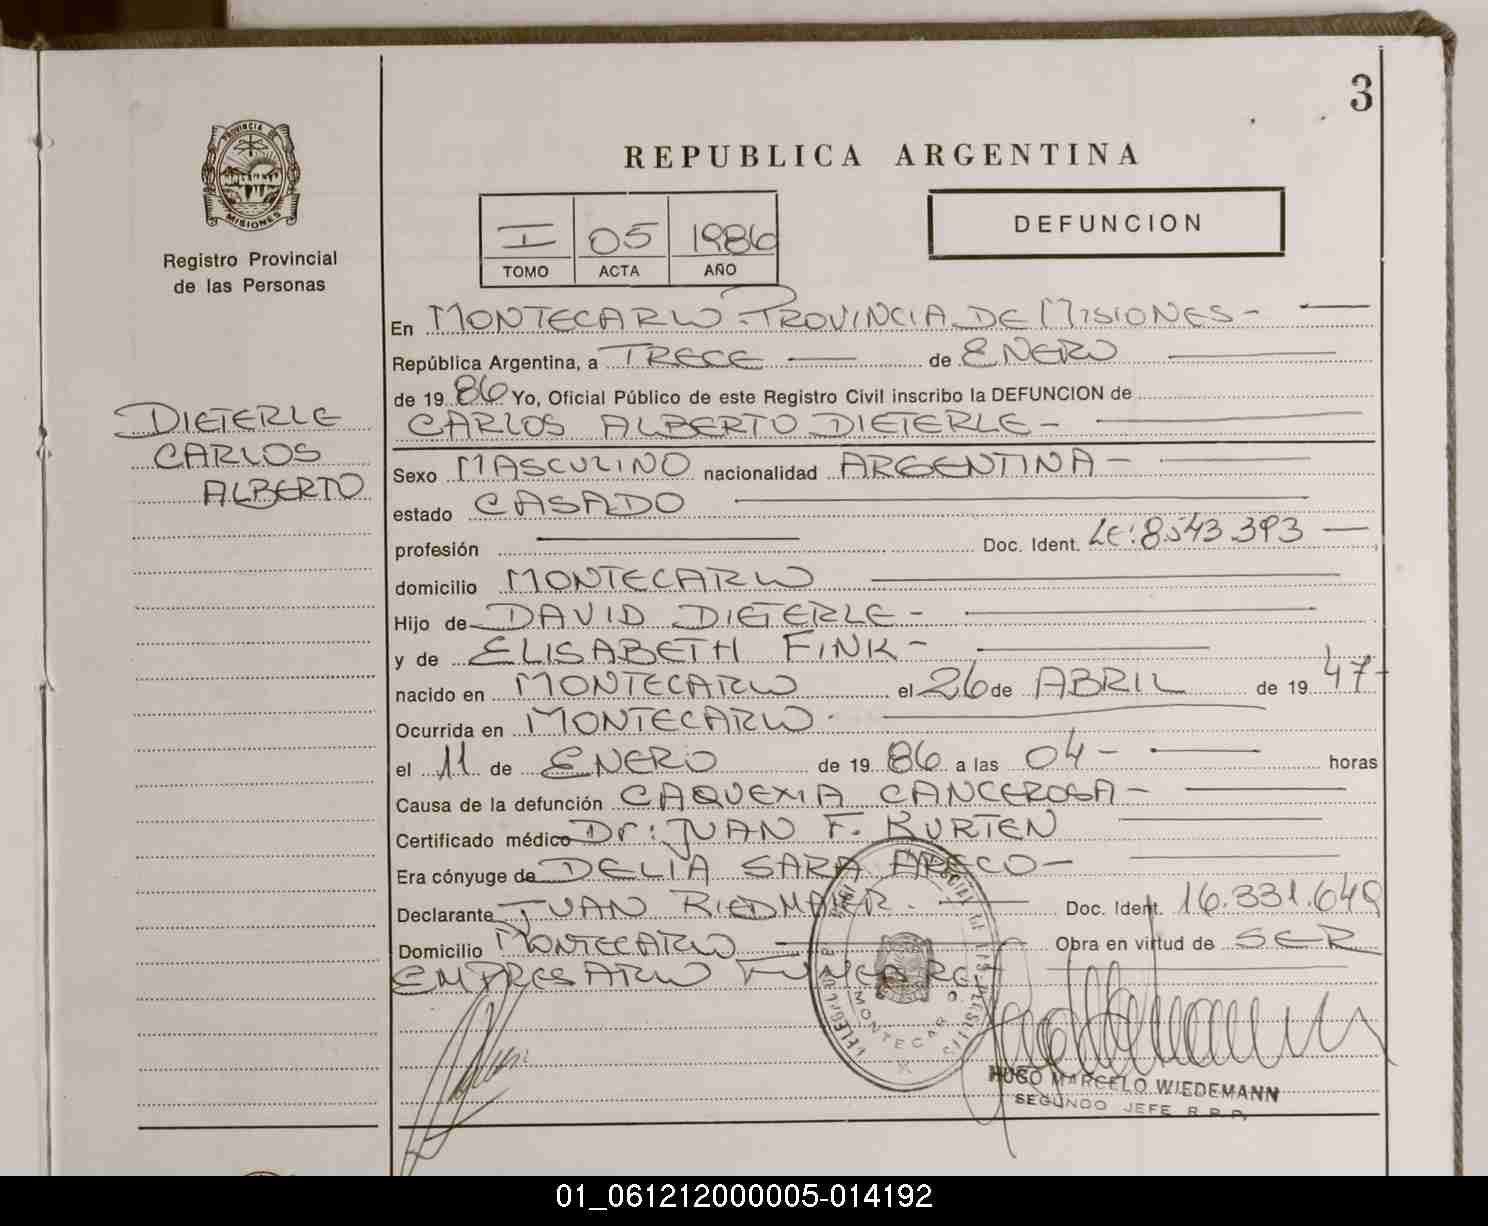 3
REPUBLICA ARGENTINA
PROVINCIA DE
MISIONES
Registro Provincial
de las Personas
I 05 1986
TOMO ACTA AÑO
DEFUNCION
DIETERLE
CARLOS
ALBERTO
En MONTECARLO - PROVINCIA DE MISIONES -
República Argentina, a TRECE de ENERO
de 1986 Yo, Oficial Público de este Registro Civil inscribo la DEFUNCION de
CARLOS ALBERTO DIETERLE -
Sexo MASCULINO nacionalidad ARGENTINA -
estado CASADO
profesión Doc. Ident. LE: 8.543.393
domicilio MONTECARLO
Hijo de DAVID DIETERLE -
y de ELISABETH FINK -
nacido en MONTECARLO el 26 de ABRIL de 1947
Ocurrida en MONTECARLO.
el 11 de ENERO de 1986 a las 04 - horas
Causa de la defunción CAQUEXIA CANCEROSA -
Certificado médico Dr: JUAN F. KURTEN
Era cónyuge de DELIA SARA ARECO -
Declarante JUAN RIEDMAIER. Doc. Ident. 16.331.649
Domicilio MONTECARLO Obra en virtud de SER
EMPRESARIO FUNEBRE
MONTECARLO
HUGO MARCELO WIEDEMANN
SEGUNDO JEFE R.P.P.
01_061212000005-014192